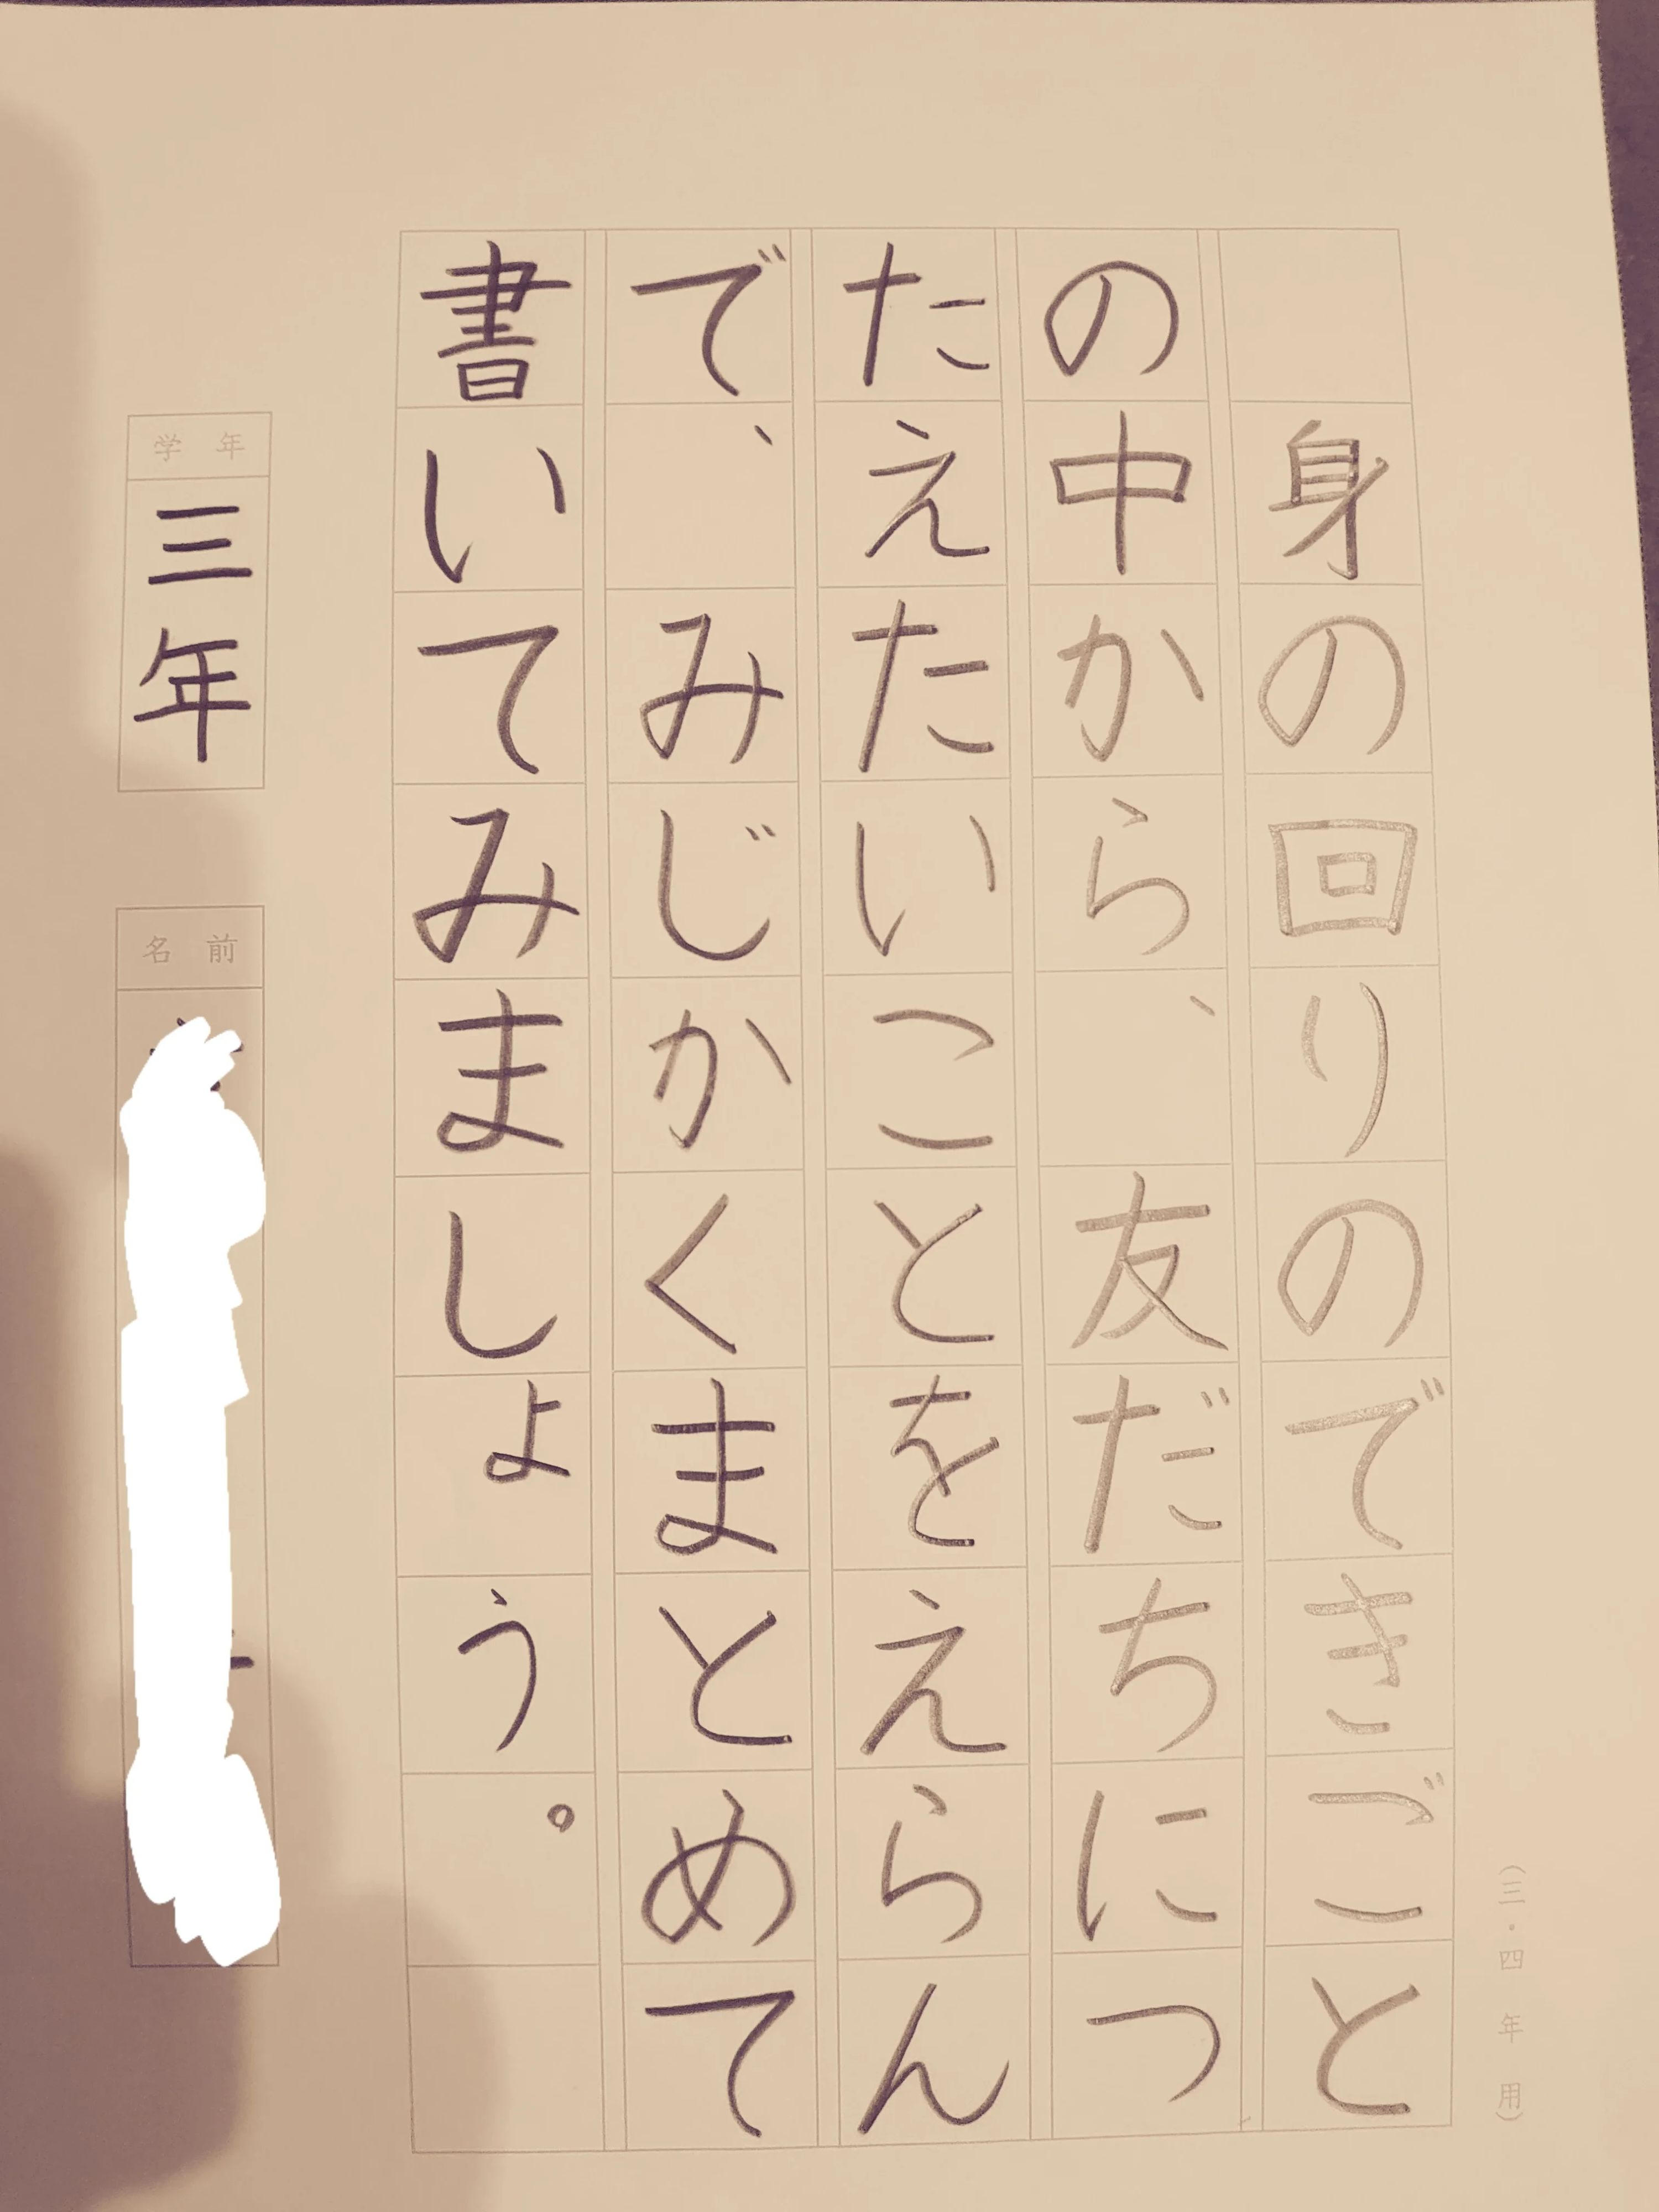 （三・四年用）
身の回りのできごと
の中から、友だちにつ
たえたいことをえらん
で、みじかくまとめて
書いてみましょう。
学年
三年
名前